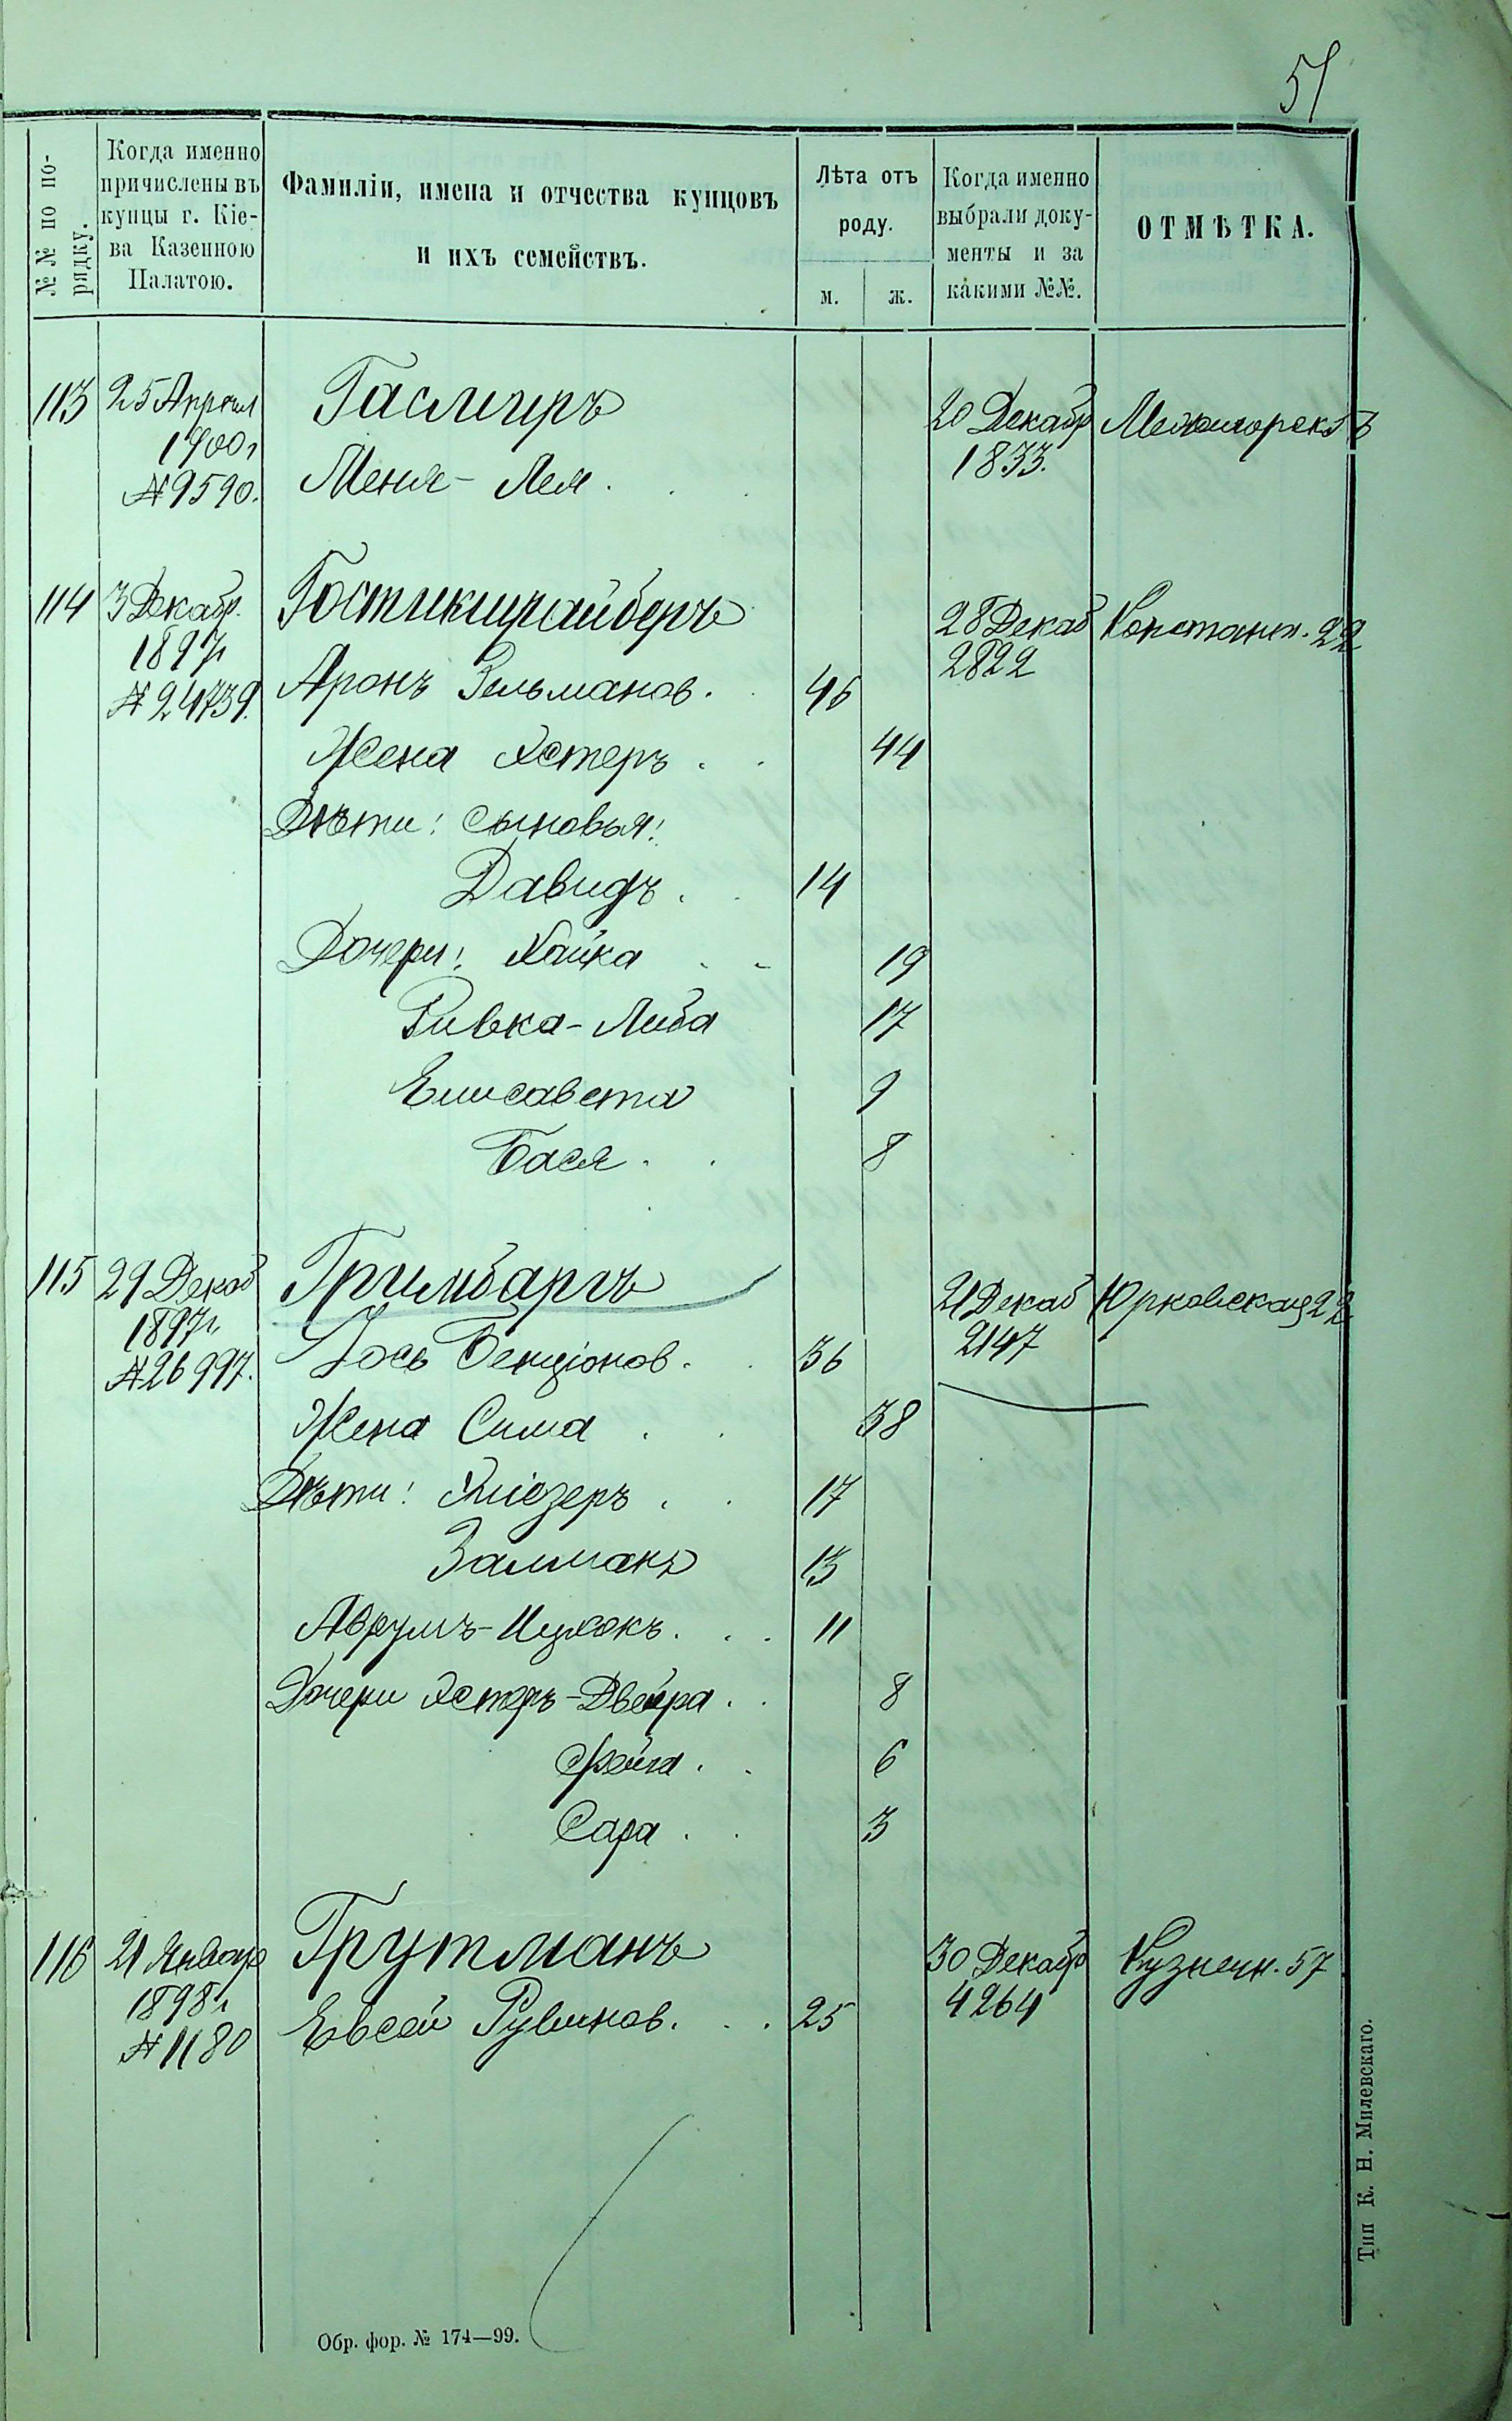 51
№№ по по-
рядку.
Когда именно
причислены въ
купцы г. Кіе-
ва Казенною
Палатою.
Фамиліи, имена и отчества купцовъ
и ихъ семействъ.
Лѣта отъ
роду.
м. ж.
Когда именно
выбрали доку-
менты и за
какими №№.
ОТМѢТКА.
113 25 Апрѣл Гаслигръ 20 Декабр
1900г 1833.
№9590. Меня-Лея
114 3 Декабр. Гостикщрайберъ 28 Декаб Констант. 22
1897г 2822
№24739. Аронъ Зельманов. 46
Жена Эстеръ 44
Дѣти: сыновья:
Давидъ 14
Дочери: Хайка 19
Ривка-Либа 17
Елисавета 9
Бася 8
115 29 Декаб Гримбаргъ 21 Декаб Юрковская 22
1897г. 2147
№26997. Іось Бенціонов. 36
Жена Сима 38
Дѣти: Эліезеръ 17
Залманъ 13
Аврумъ-Ицхокъ 11
Дочери Эстеръ-Двейра 8
Фейга 6
Сара 3
116 21 Январ Грутманъ 30 Декабр Кузнечн. 57
1898г 4264
№1180 Евсей Рувинов. 25
Обр. фор. № 174—99.
Тип К. Н. Милевскаго.